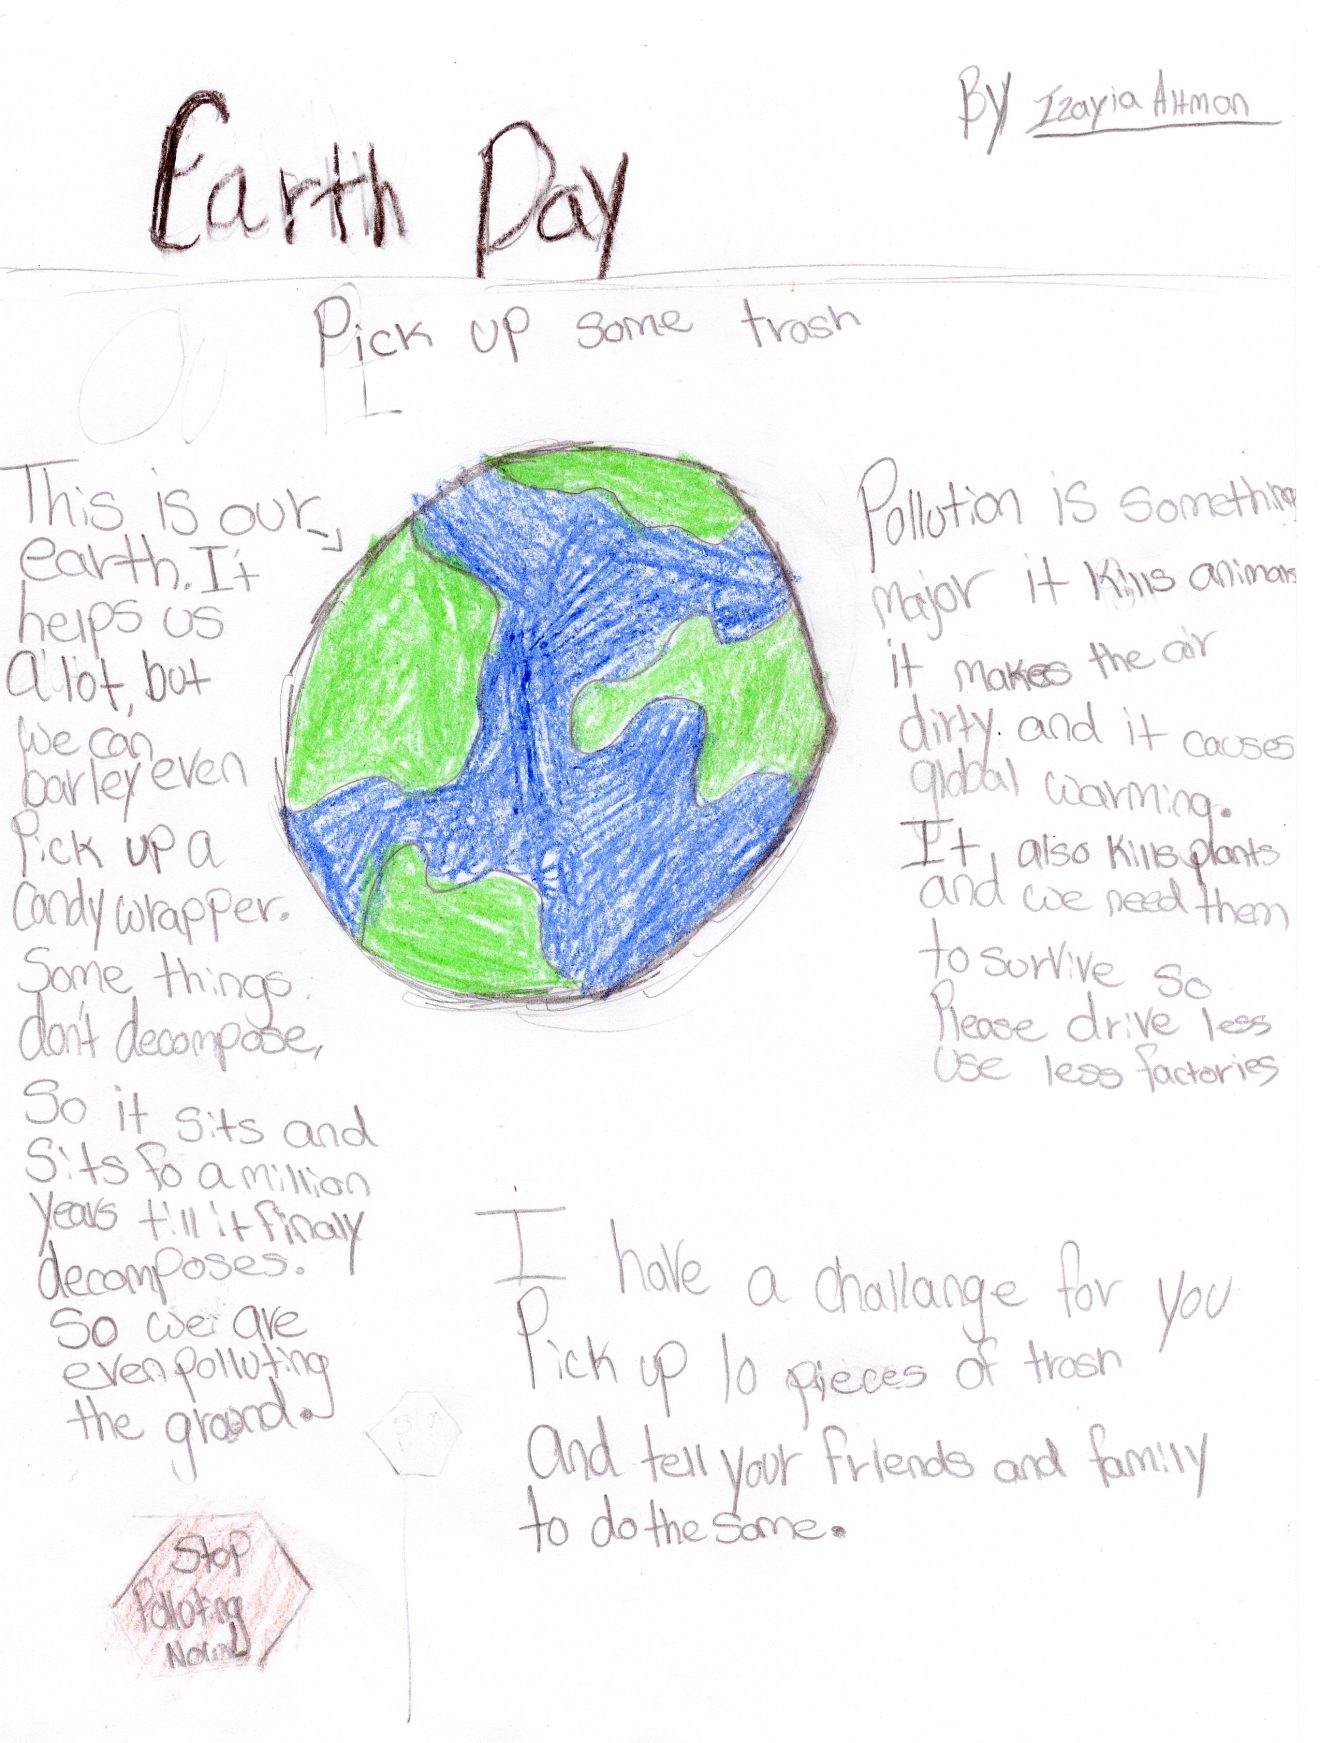 Earth Day
By Izayia Altman
Pick up some trash
This is our
earth. It
helps us
a lot, but
we can
barley even
Pick up a
candy wrapper.
Some things
don't decompose,
So it sits and
Sits fo a million
years till it finaly
decomposes.
So we are
even polluting
the ground.
Stop
Polluting
Now
Pollution is something
major it kills animals
it makes the air
dirty and it causes
global warming.
It, also kills plants
and we need them
to survive so
Please drive less
use less factories
I have a challange for you
Pick up 10 pieces of trash
And tell your friends and family
to do the same.